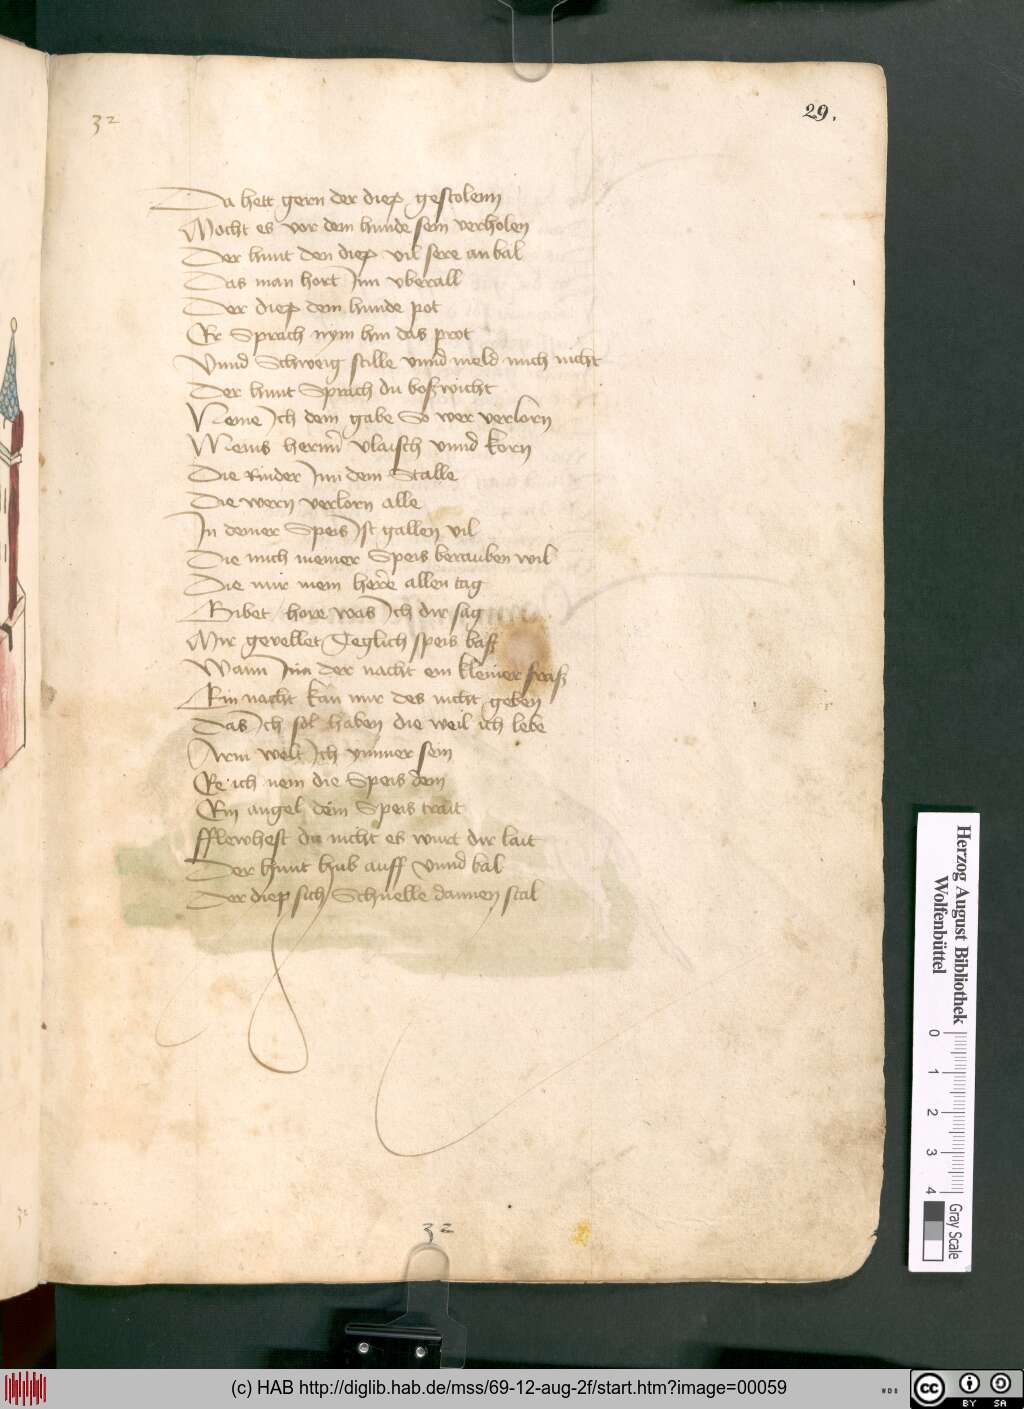 32
29.
Da hett gern der diep gestolenn
Mocht es vor dem hunde sein verholen
Der hunt den diep vil sere an bal
Das man hort Jnn vberall
Der diep dem hunde pot
Er Sprach nym hin das prot
Vnnd Schweig stille vnnd meld mich nicht
Der hunt Sprach du boßwicht
Neme Jch dein gabe So wer verlorn
Meins herrn vlaisch vnnd korn
Die Rinder Jnn dem Stalle
Die wern verlorn alle
Jn deiner Speis Jst gallen vil
Die mich meiner Speis berauben wil
Die mir mein herre allen tag
Gibet hore was Jch dir sag
Mir gevellet Teglich speis baß
Wann Jnn der nacht ein kleiner fraß
Ein nacht kan mir des nicht geben
Das Jch sol haben die weil ich lebe
Arm wolt Jch ymmer sein
Ee ich nem die Speis dein
Ein angel dein Speis trait
fflewhest du nicht es wirt dir lait
Der hunt hub auff vnnd bal
Der diep sich Schnelle dannen stal
32
Herzog August Bibliothek
Wolfenbüttel
0 1 2 3 4
Gray Scale
(c) HAB http://diglib.hab.de/mss/69-12-aug-2f/start.htm?image=00059
WDB
cc
BY SA